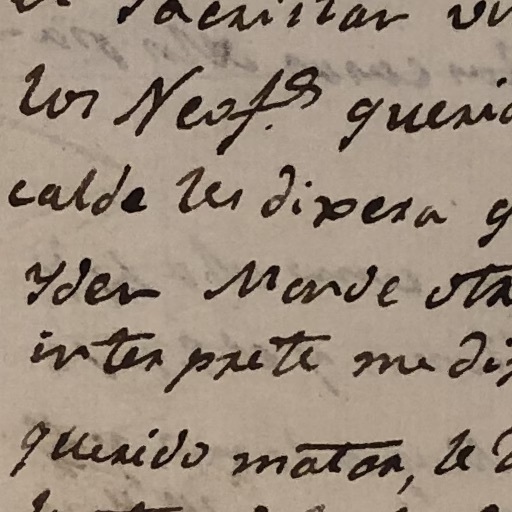 Sacristan
los Neof.s queri
calde les dixera q
Yden Mande otr
interprete me di
querido matar, le